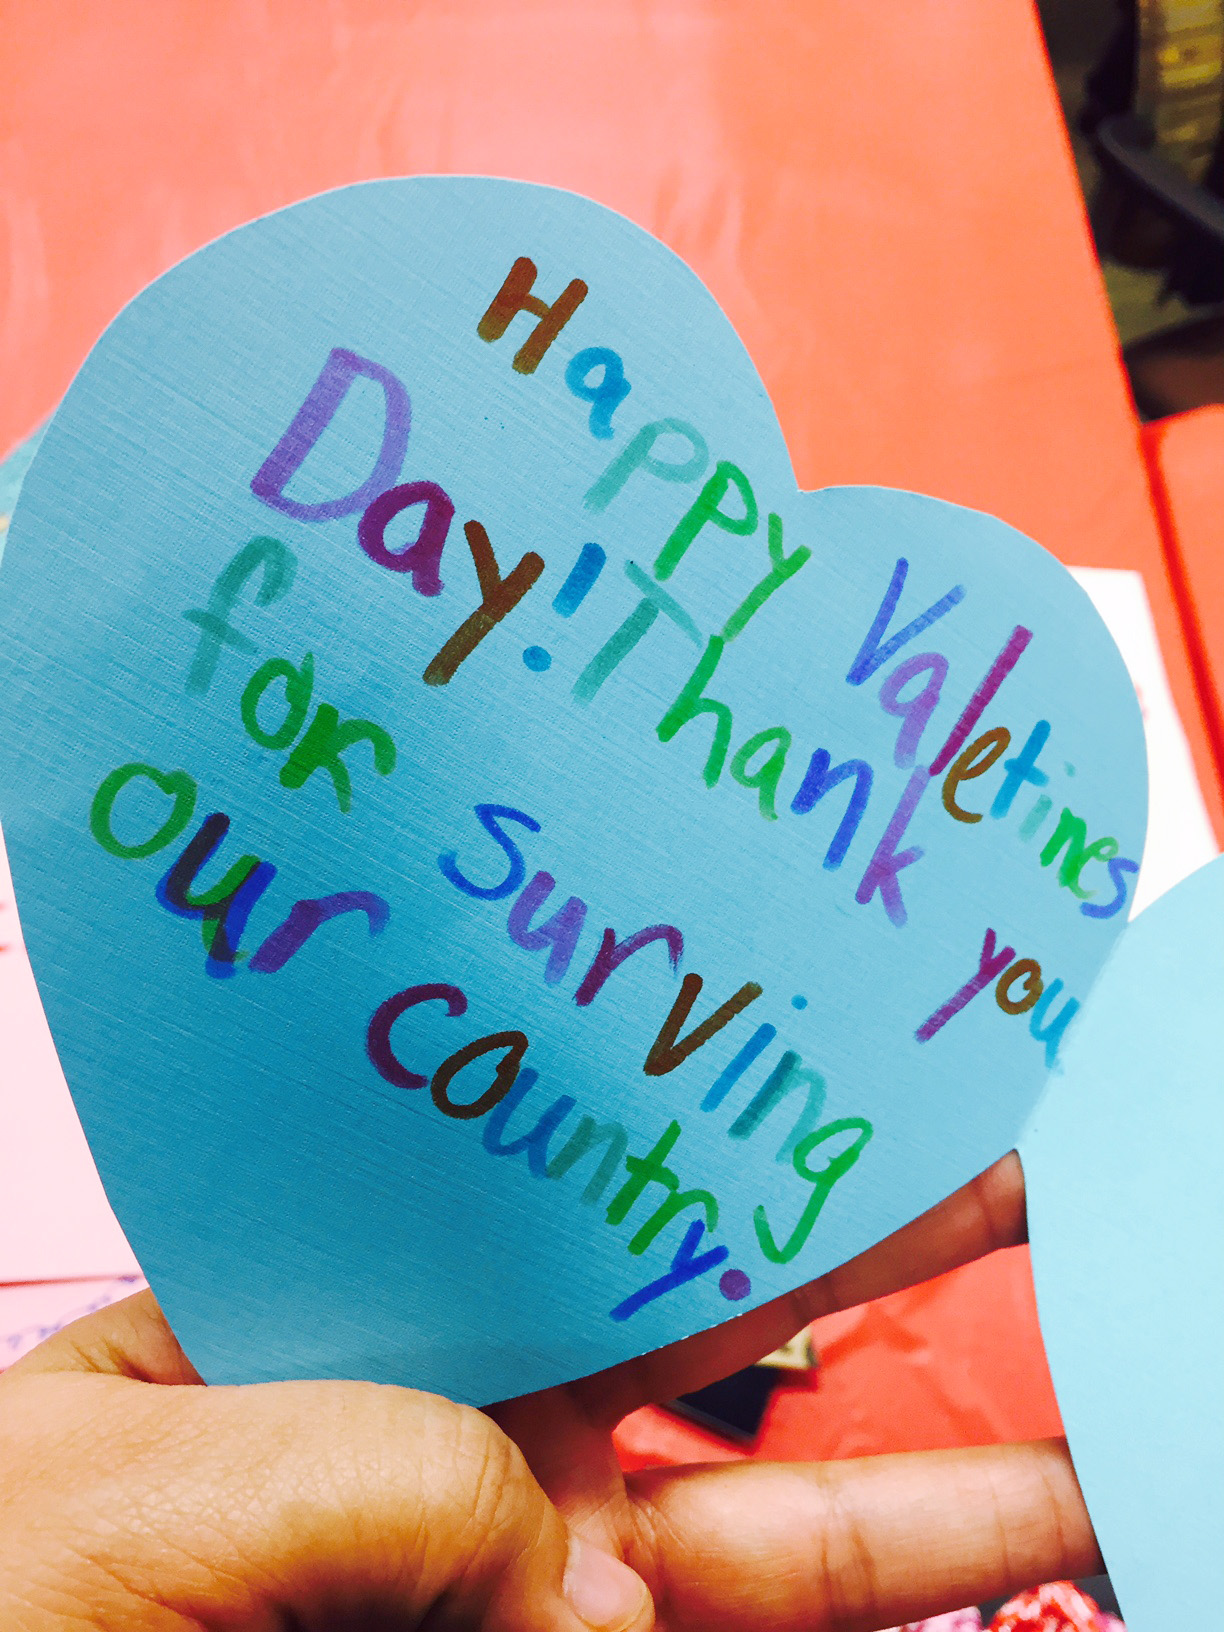 Happy Valetines
Day! Thank you
for surving
our country.